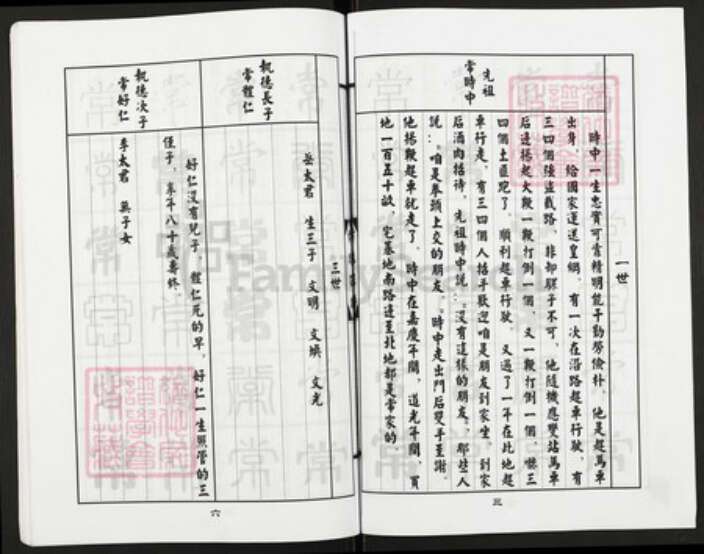 一世
先祖
常時中
時中一生忠實可靠精明能干勤勞儉朴，他是趕馬車
出身，給國家運送皇綱，有一次在沿路趕車行駛，有
三四個強盜截路，非卸騾子不可，他隨機應變站馬車
后邊揚起大鞭一鞭打倒一個，又一鞭打倒一個，嚇三
四個土匪跑了，順利趕車行駛，又過了一年在此地趕
車行走，有三四個人拮手歡迎咱是朋友到家坐，到家
后酒肉招待，先祖時中說：沒有這樣的朋友，那些人
說：咱是拳頭上交的朋友，時中走出門后雙手至謝，
他揚鞭趕車就走了，時中在嘉慶年間，道光年間，買
地一百五十畝，宅基地南路邊至北地都是常家的
三
三世
親德長子
常體仁
岳太君 生三子 文明 文煥 文光
親德次子
常好仁
好仁沒有兒子，體仁死的早，好仁一生照管的三
侄子，享年八十歲壽終，
李太君 無子女
六